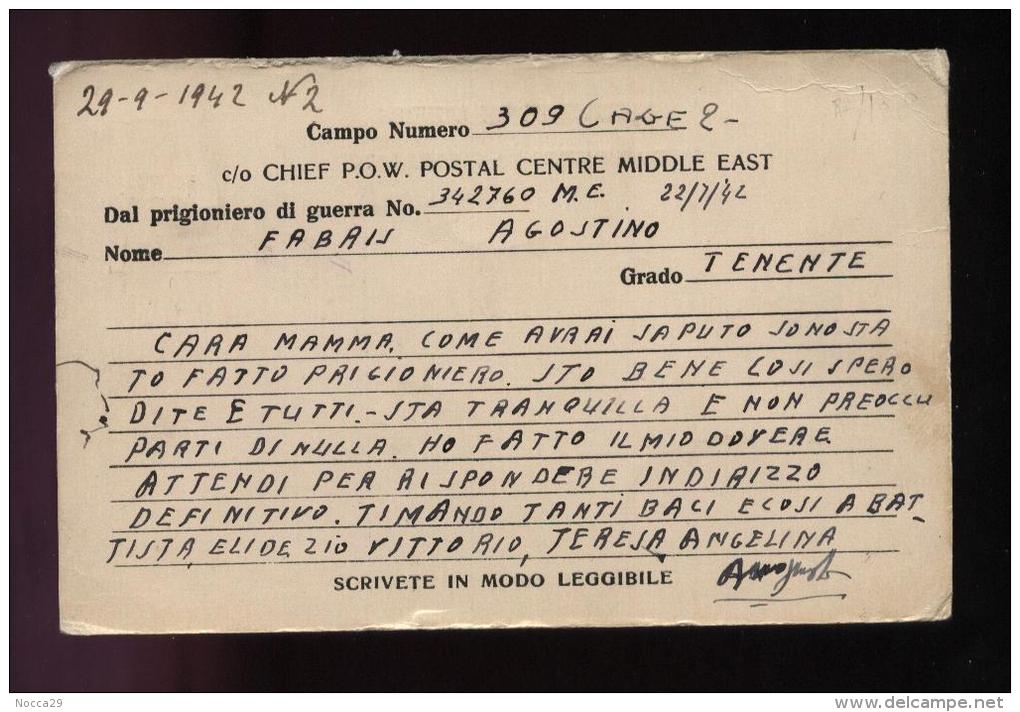 29-9-1942 N2
Campo Numero 309 CAGE 2-
c/o CHIEF P.O.W. POSTAL CENTRE MIDDLE EAST
Dal prigioniero di guerra No. 342760 M.E. 22/7/42
Nome FABAIS AGOSTINO
Grado TENENTE
CARA MAMMA. COME AVRAI SAPUTO SONO STA
TO FATTO PRIGIONIERO. STO BENE COSI SPERO
DITE E TUTTI.- STA TRANQUILLA E NON PREOCCU
PARTI DI NULLA. HO FATTO IL MIO DOVERE.
ATTENDI PER RISPONDERE INDIRIZZO
DEFINITIVO. TI MANDO TANTI BACI E COSI A BAT_
TISTA, ELIDE ZIO VITTORIO, TERESA ANGELINA
SCRIVETE IN MODO LEGGIBILE
Nocca29
delcampe.net